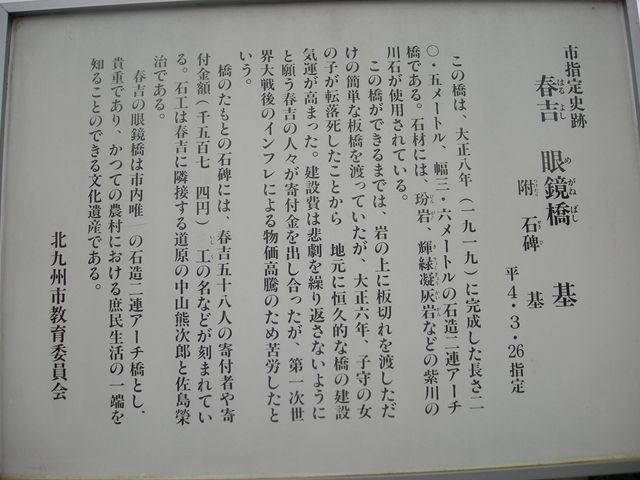 市指定史跡
春吉 眼鏡橋 基
はる よし め がね ばし
附 石碑 基
つけたり せき ひ
平4・3・26指定
この橋は、大正八年（一九一九）に完成した長さ二
〇・五メートル、幅三・六メートルの石造二連アーチ
橋である。石材には、玢岩、輝緑凝灰岩などの紫川の
川石が使用されている。
この橋ができるまでは、岩の上に板切れを渡しただ
けの簡単な板橋を渡っていたが、大正六年、子守の女
の子が転落死したことから 地元に恒久的な橋の建設
気運が高まった。建設費は悲劇を繰り返さないように
と願う春吉の人々が寄付金を出し合ったが、第一次世
界大戦後のインフレによる物価高騰のため苦労したと
いう。
橋のたもとの石碑には、春吉五十八人の寄付者や寄
付金額（千五百七 四円） 工の名などが刻まれてい
る。石工は春吉に隣接する道原の中山熊次郎と佐島榮
治である。
春吉の眼鏡橋は市内唯 の石造二連アーチ橋とし、
貴重であり、かつての農村における庶民生活の一端を
知ることのできる文化遺産である。
北九州市教育委員会